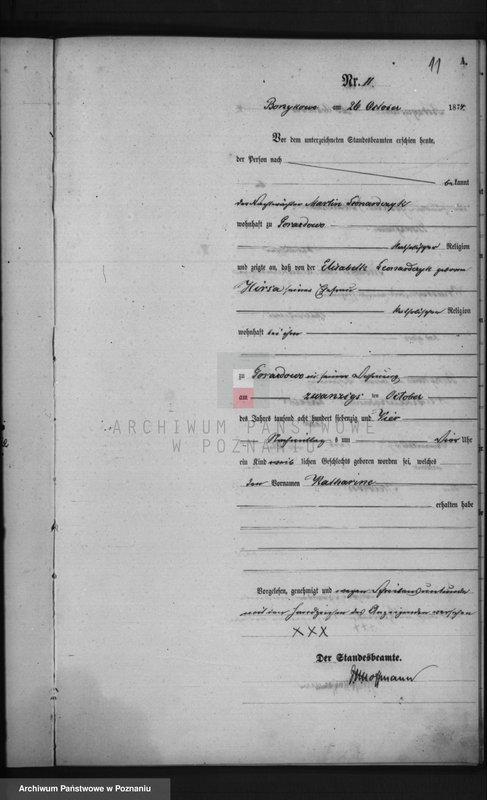 11
A.
Nr. 11.
Borzykowo am 26 October 1874.
Vor dem unterzeichneten Standesbeamten erschien heute,
der Person nach
be kannt
der Nachtwächter Martin Leonardczyk
wohnhaft zu
katholischer Religion
und zeigte an, daß von der Elisabeth Leonardczyk geborene
Hirsa seiner Ehefrau
katholischer Religion
wohnhaft bei ihm
zu in seiner Wohnung
am zwanzigs ten October
des Jahrs tausend acht hundert siebenzig und Vier
Nachmittag s um Vier Uhr
ein Kind weib lichen Geschlechts geboren worden sei, welches
den Vornamen Katharine
erhalten habe
ARCHIWUM PAŃSTWOWE
W POZNANIU
Vorgelesen, genehmigt und wegen Schreibensunkunde
mit dem Handzeichen des Anzeigenden versehen
XXX
Der Standesbeamte.
Hoffmann
Archiwum Państwowe w Poznaniu